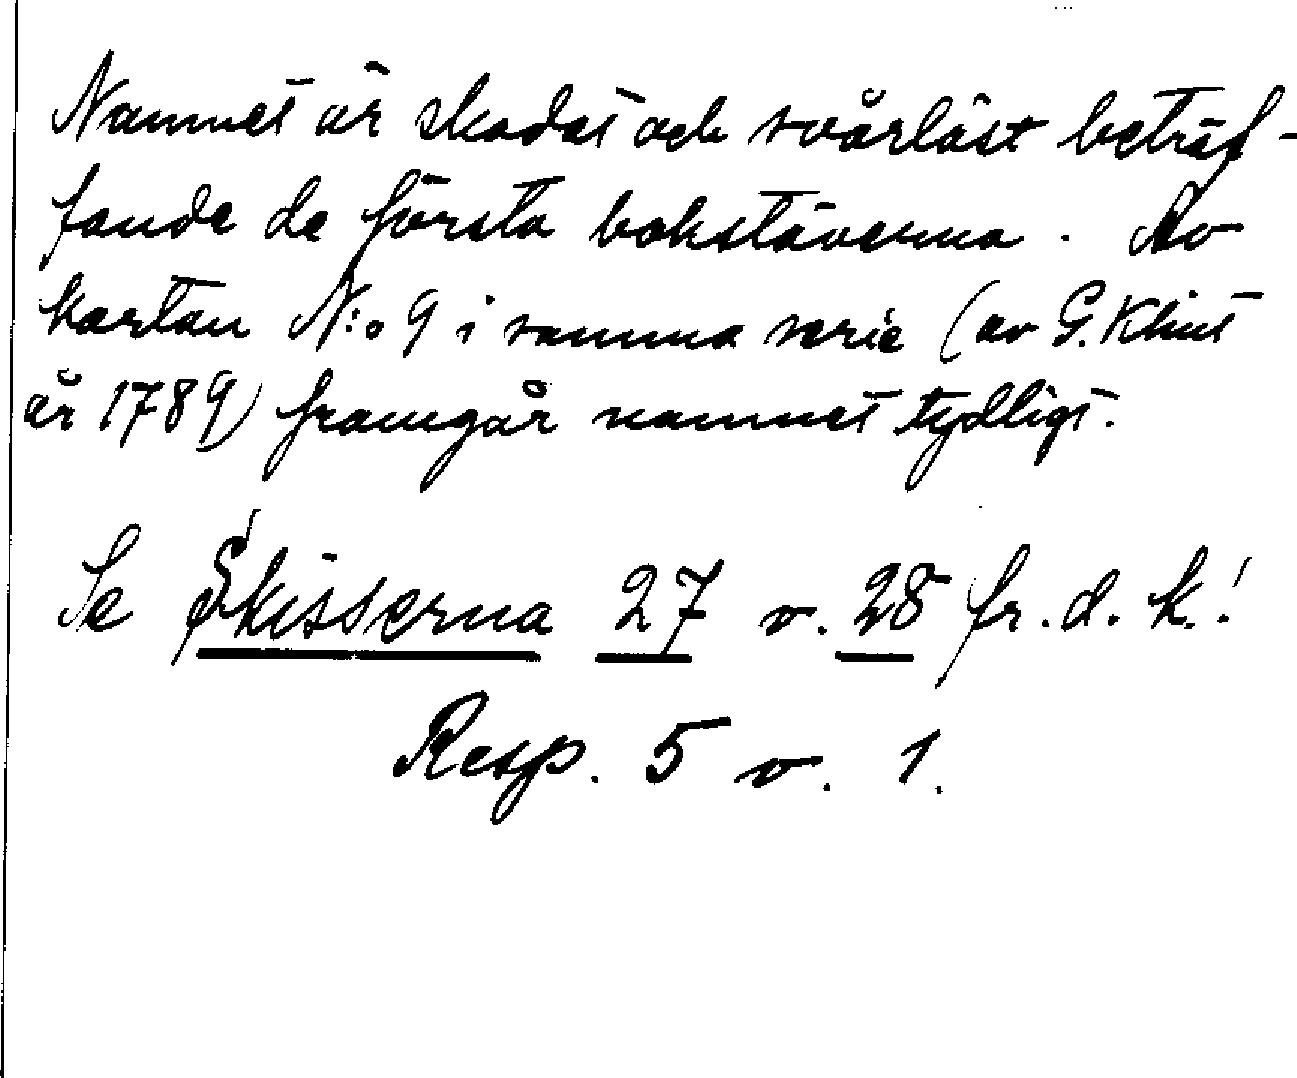 Namnet är skadat och svårläst beträf-
fande de första bokstäverna. Av
kartan N:o 9 i samma serie (av G. Klint
år 1789) framgår namnet tydligt.
Se Skisserna 27 o. 28 fr. d. k.!
Resp. 5 o. 1.